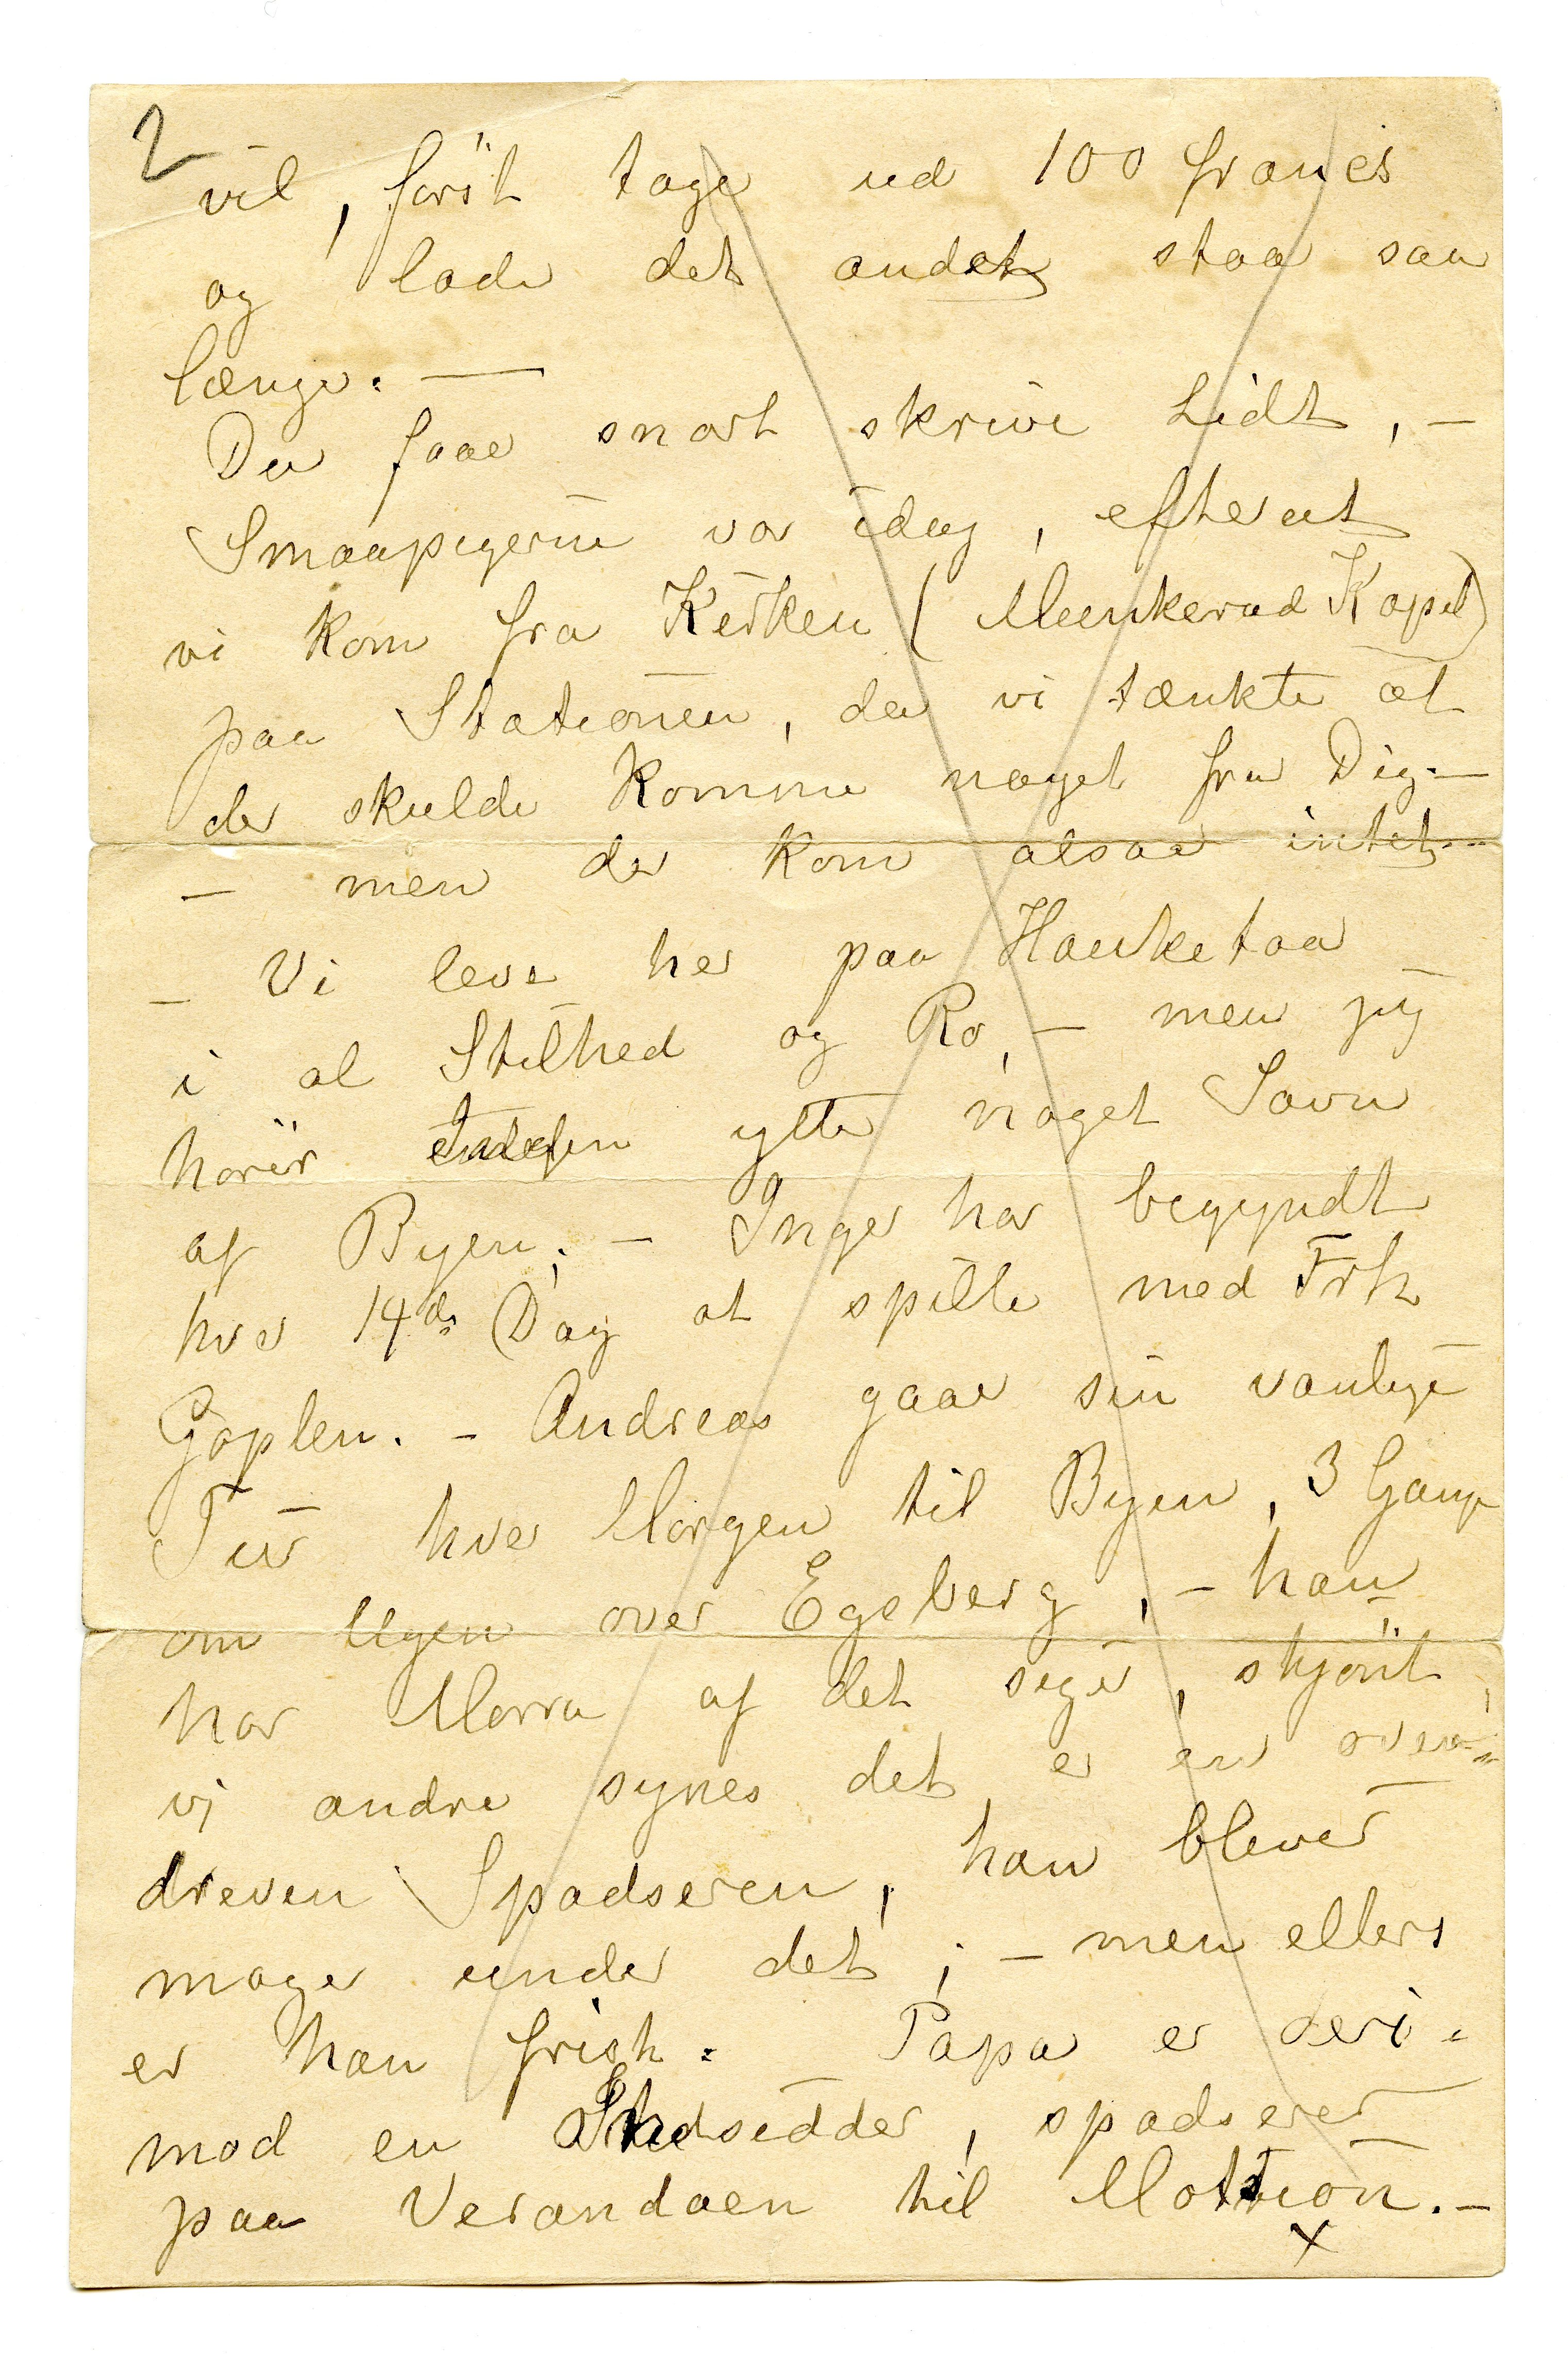 2
vil, först tage ud 100 francs
og lade det andet staa saa
længe. —
Du faae snart skrive lidt, —
Smaapigerne var idag, efterat
vi kom fra Kirken (Munkerud Kapel)
paa Stationen, da vi tænkte at
der skulde komme noget fra Dig. —
— men der kom alsaa intet. —
— Vi leve her paa Hauketoa
i al Stilhed og Ro, — men jeg
hörer ytte noget Savn
af Byen; — Inger har begyndt
hver 14de Dag at spille med Frk
Goplen. — Andreas gaar sin vanlige
Tur hver Morgen til Byen, 3 Gange
om Ugen over Egeberg, — han
har Morra af det siger, skjönt
vi andre synes det er en over=
dreven Spadseren, han bliver
mager under det; — men ellers
er han frisk. Papa er deri=
mod en Stedsidder, spadserer
paa Verandaen til Mottion. —
x